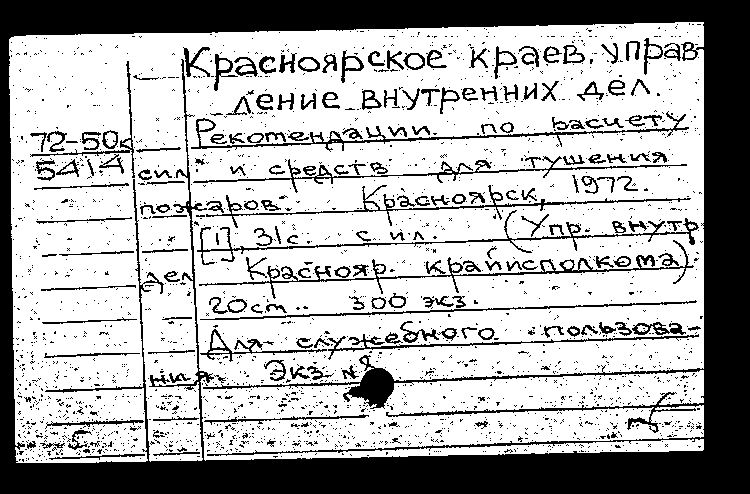 Красноярское краев. управ-
ление внутренних дел.
72-50к Рекомендации по расчету
5414 сил и средств для тушения
пожаров. Красноярск, 1972.
[1], 31с. с ил. (Упр. внутр
дел Краснояр. крайисполкома)
20см.. 300 экз.
Для служебного пользова-
ния. Экз №